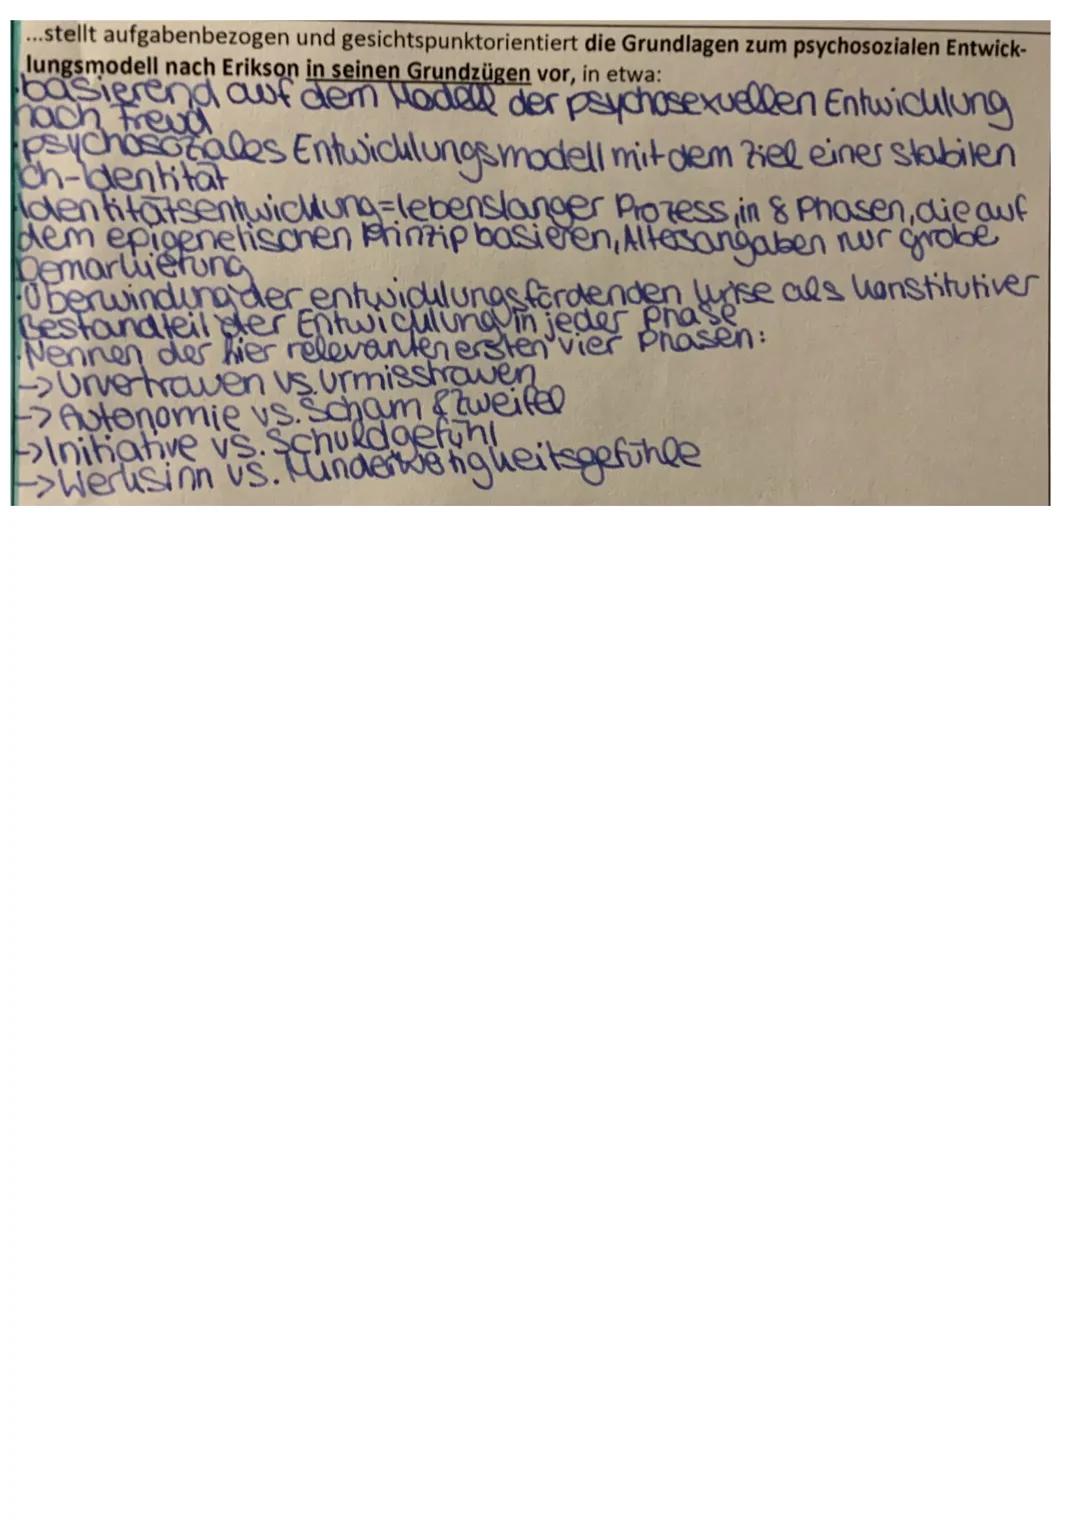 ...stellt aufgabenbezogen und gesichtspunktorientiert die Grundlagen zum psychosozialen Entwick-
lungsmodell nach Erikson in seinen Grundzügen vor, in etwa:
·basierend auf dem Modell der psychosexuellen Entwicklung
nach Freud
·psychosoziales Entwicklungsmodell mit dem Ziel einer stabilen
Ich-Identität
·Identitätsentwicklung=lebenslanger Prozess, in 8 Phasen, die auf
dem epigenetischen Prinzip basieren, Altersangaben nur grobe
Demarkierung
·Überwindung der entwicklungsfördenden Krise als konstitutiver
Bestandteil der Entwicklung in jeder Phase
·Nennen der hier relevanten ersten vier Phasen:
->Urvertrauen vs. Urmisstrauen
-> Autonomie vs. Scham & Zweifel
->Initiative vs. Schuldgefühl
->Werksinn vs. Minderwertigkeitsgefühle